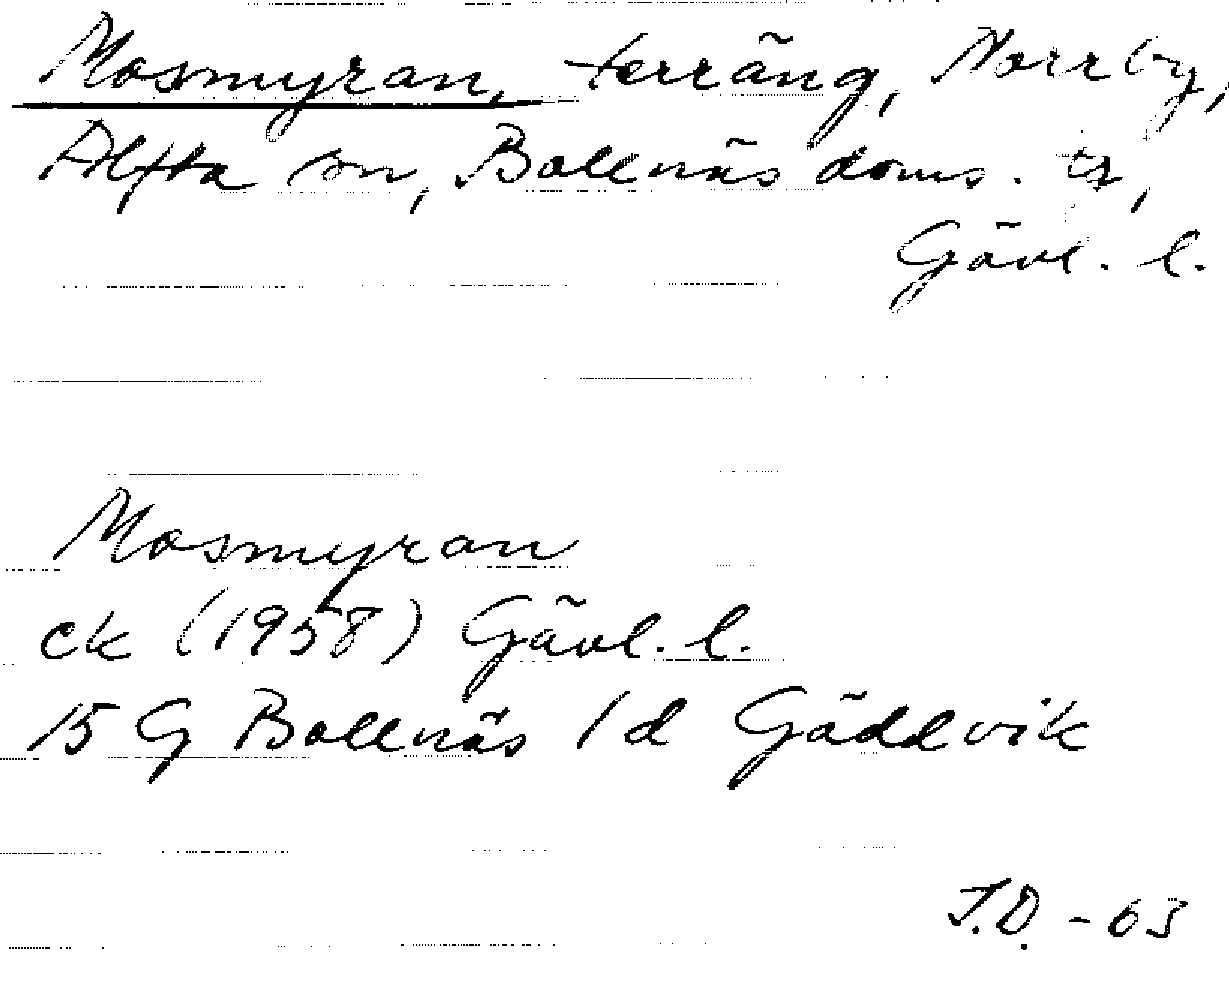 Mosmyran, terräng, Norrby,
Alfta sn, Bollnäs doms. tg,
Gävl. l.
Mosmyran
ek (1958) Gävl. l.
15 G Bollnäs 1d Gäddvik
J.D. -63